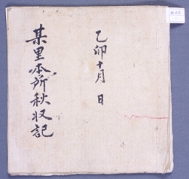 乙卯十月 日
某里本所秋收記